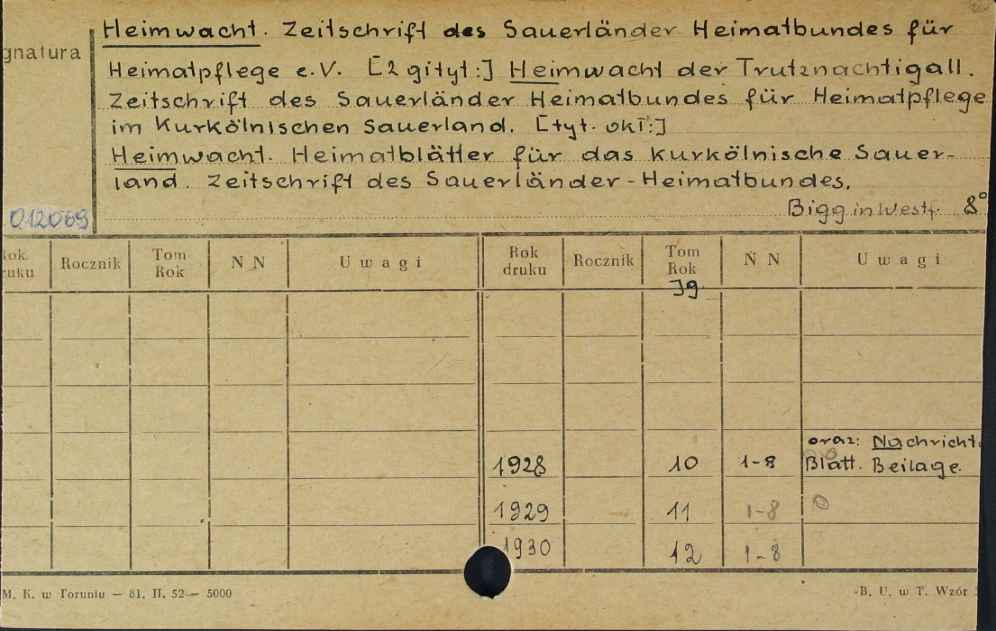 Heimwacht. Zeitschrift des Sauerländer Heimatbundes für
gnatura
Heimatpflege e.V. [2 gityt:] Heimwacht der Trutznachtigall.
Zeitschrift des Sauerländer Heimatbundes für Heimatpflege
im Kurkölnischen Sauerland. [tyt. okł:]
Heimwacht. Heimatblätter für das Kurkölnische Sauer-
land. Zeitschrift des Sauerländer-Heimatbundes.
Bigg in Westf. 8°
012069
Rok druku Rocznik Tom Rok N N Uwagi Rok druku Rocznik Tom Rok N N Uwagi
Jg.
oraz: Nachricht.
1928 10 1-8 Blatt. Beilage.
1929 11 1-8
1930 12 1-8
M. K. w Toruniu — 81. II. 52 — 5000 B. U. w T. Wzór